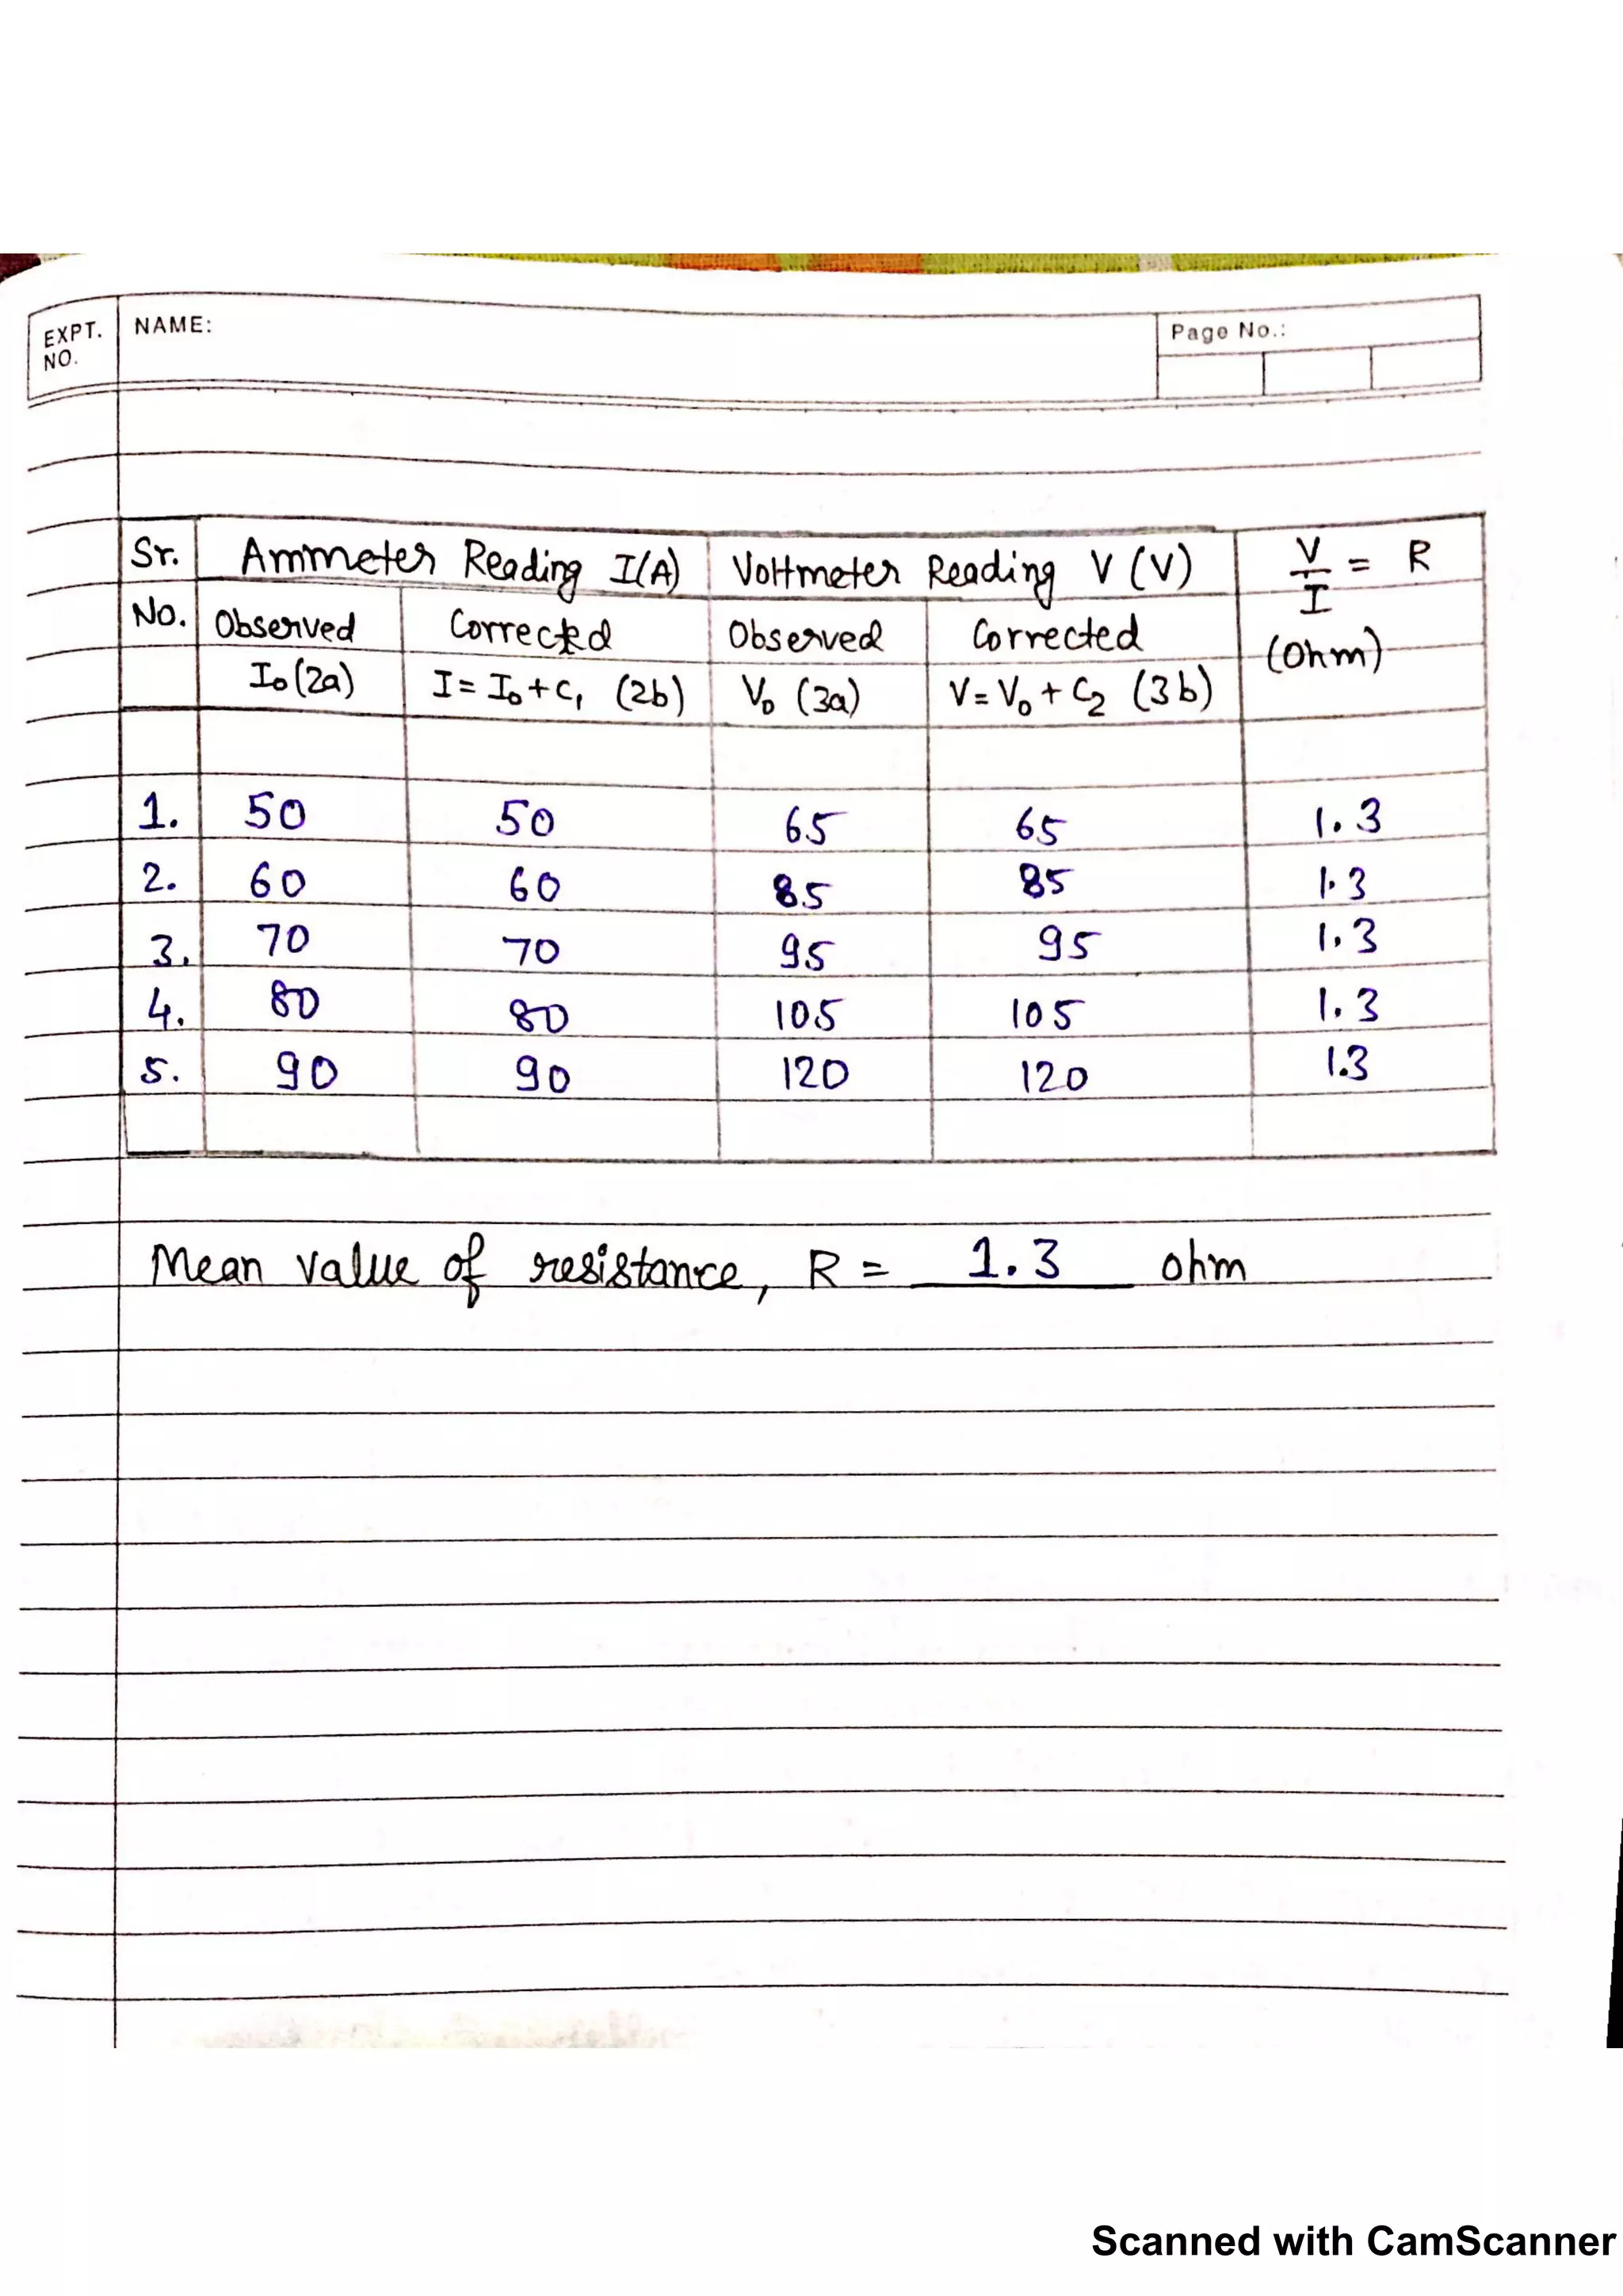 EXPT. NO. NAME: Page No.:
Sr. No. Ammeter Reading I(A) Voltmeter Reading V (V) V/I = R (Ohm)
Observed I₀ (2a) Corrected I = I₀ + C₁ (2b) Observed V₀ (3a) Corrected V = V₀ + C₂ (3b)
1. 50 50 65 65 1.3
2. 60 60 85 85 1.3
3. 70 70 95 95 1.3
4. 80 80 105 105 1.3
5. 90 90 120 120 1.3
Mean value of resistance, R = 1.3 ohm
Scanned with CamScanner